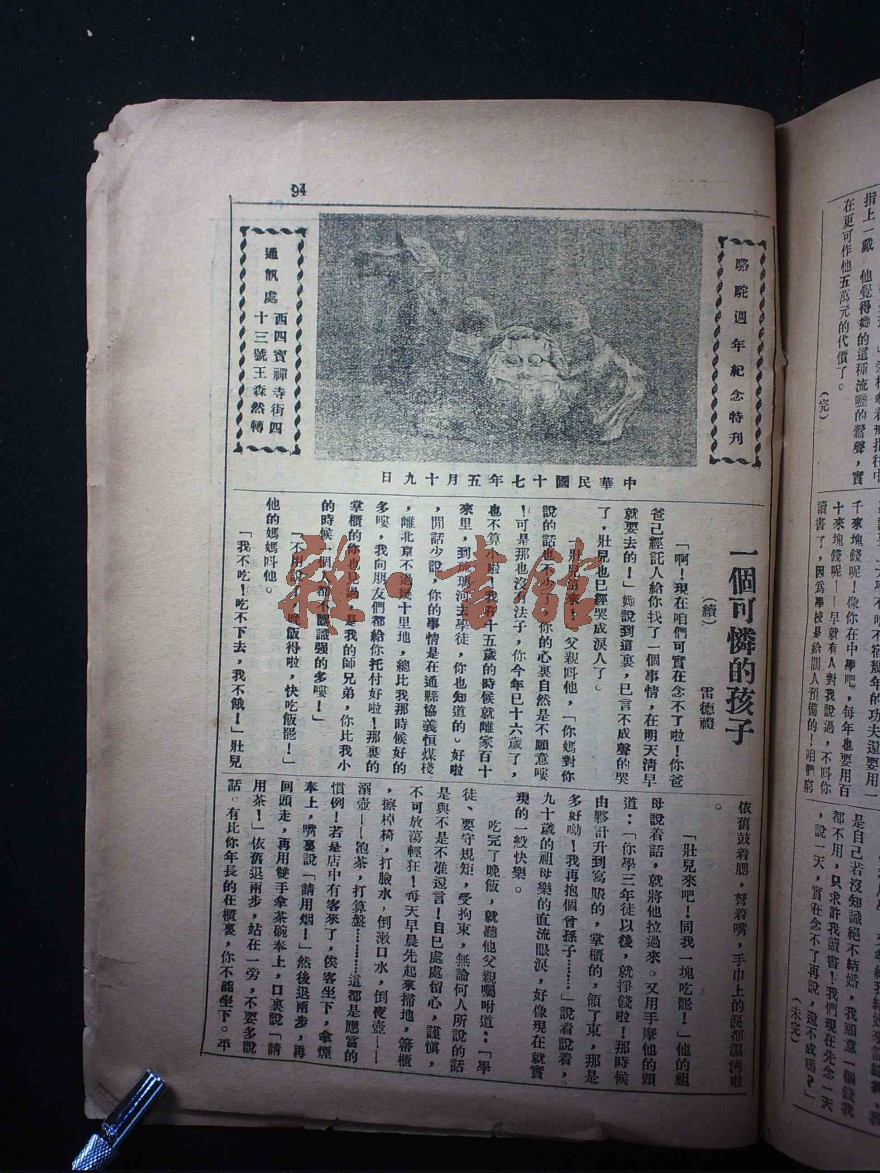 94
駱駝週年紀念特刊
通訊處
西四寶禪寺街四
十三號王森然轉
中華民國十七年五月十九日
一個可憐的孩子
(續)
雷德禮
「啊!現在咱們可實在念不了啦!你爸
爸已經託人給你找了一個事情,在明天清早
就要去的!」她說到這裏,已言不成聲的哭
了,壯兒也已經哭成淚人了。
父親叫他,「你媽對你
說的話也不
你的心裏自然是不願意嘍
!可是那也沒有法子,你今年已十六歲了,
也不算小啦,我在十五歲的時候就離家百十
來里,到
河去學徒,你也知道的。好啦
,閒話少說,你的事情是在通縣協義恒煤棧
,離北京不過幾十里地,總比我那時候好的
多嘍,我向朋友們都給你托付好啦!那裏的
掌櫃的你也
我的師兄弟,你比我小
的時候一個
識强的多嘍!」
「不用說
飯得啦,快吃飯罷!」
他的媽媽叫他。
「我不吃!吃不下去,我不餓!」壯兒
依舊鼓着腮,努着嘴,手巾上的淚都濕
啦
。
「壯兒來吧!同我一塊吃罷!」他的祖
母說着話,就將他拉過來。又用手摩他的頭
道:「你學三年徒以後,就掙錢啦!那時候
由夥計升到寫賬的,掌櫃的,領了東,那是
多好呦!我再抱個曾孫子………」說着說着,
九十歲的祖母樂的直流眼淚,好像現在就實
現的一般快樂。
吃完了晚飯,就聽他父親囑咐道:「學
徒、要守規矩,受拘束,無論何人所說的話
是與不是不准還言!自己處處留心,謹慎,
不可放蕩輕狂!每天早晨先起來掃地,簪櫃
,擦棹椅,打臉水,倒漱口水,倒夜壺——
溺壺——泡茶,打算盤………這都是應當的
慣例!若是店中有客來了,俟客坐下,拿煙
奉上,嘴裏說「請用烟!」然後退兩步,再
回頭走,再用雙手拿茶碗奉上,口裏說「請
用茶!」依舊退兩步,站在一旁,不要多說
話,有比你年長的在櫃裏,你不能坐下。平
指上一戴,他覺得她的這種流鶯的鶯聲,實
在更可作他五萬元的代價了。
(完)
千來塊錢呢!像你在中學吧,每年也要用百
十來塊錢呢!——早就有人對我說過,不叫你
讀書了,因爲學校是給闊人預備的!咱們窮
是自己若沒知識絕不結婚,我願意一個錢我
都不用,只求許我讀書!我們現在先念一天
,說一天,實在念不了再說,還不成嗎?」
(未完)
雜·書館